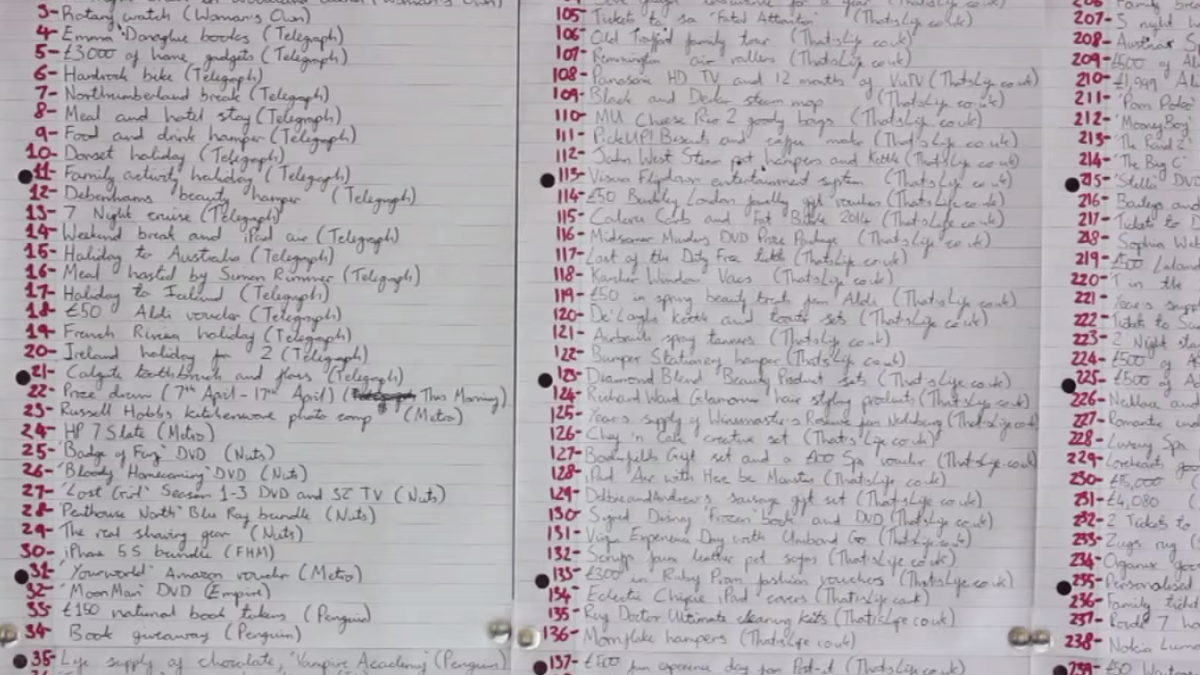 3- Rotary watch (Woman's Own)
4- Emma Donoghue books (Telegraph)
5- £3000 of home gadgets (Telegraph)
6- Hardrock bike (Telegraph)
7- Northumberland break (Telegraph)
8- Meal and hotel stay (Telegraph)
9- Food and drink hamper (Telegraph)
10- Dorset holiday (Telegraph)
11- Family activity holiday (Telegraph)
12- Debenhams beauty hamper (Telegraph)
13- 7 Night cruise (Telegraph)
14- Weekend break and iPad air (Telegraph)
15- Holiday to Australia (Telegraph)
16- Meal hosted by Simon Rimmer (Telegraph)
17- Holiday to Iceland (Telegraph)
18- £50 Aldi voucher (Telegraph)
19- French Riviera holiday (Telegraph)
20- Ireland holiday for 2 (Telegraph)
21- Colgate toothbrush and floss (Telegraph)
22- Prize draw (7th April - 17th April) (This Morning)
23- Russell Hobbs kitchenware photo comp (Metro)
24- HP 7 Slate (Metro)
25- 'Badge of Fury' DVD (Nuts)
26- 'Bloody Homecoming' DVD (Nuts)
27- 'Lost Girl' Season 1-3 DVD and 32 TV (Nuts)
28- 'Penthouse North' Blu Ray bundle (Nuts)
29- The real shaving gear (Nuts)
30- iPhone 5S bundle (FHM)
31- 'Yourworld' Amazon voucher (Metro)
32- 'Moon Man' DVD (Empire)
33- £150 national book tokens (Penguin)
34- Book giveaway (Penguin)
35- Life supply of chocolate, 'Vampire Academy' (Penguin)
105- Tickets to see 'Fatal Attraction' (ThatsLife.co.uk)
106- Old Trafford family tour (ThatsLife.co.uk)
107- Remmington air rollers (ThatsLife.co.uk)
108- Panasonic HD TV and 12 months of VuTV (ThatsLife.co.uk)
109- Black and Decker steam mop (ThatsLife.co.uk)
110- MU Cheese Rio 2 goody bags (ThatsLife.co.uk)
111- PickUP! Biscuits and coffee maker (ThatsLife.co.uk)
112- John West Steam pot hampers and Kettle (ThatsLife.co.uk)
113- Flipdown entertainment system (ThatsLife.co.uk)
114- £50 Buckley London jewelry gift voucher (ThatsLife.co.uk)
115- Calorie Carb and Fat Bible 2014 (ThatsLife.co.uk)
116- Midsomer Murders DVD Prize Package (ThatsLife.co.uk)
117- Last of the Duty Free tickets (ThatsLife.co.uk)
118- Karcher Window Vacs (ThatsLife.co.uk)
119- £50 in spring beauty treats from Aldi (ThatsLife.co.uk)
120- De'Longhi kettle and toaster sets (ThatsLife.co.uk)
121- Airbrush spray tanners (ThatsLife.co.uk)
122- Bumper Stationery hamper (ThatsLife.co.uk)
123- Diamond Blend Beauty Product sets (ThatsLife.co.uk)
124- Richard Ward Glamorous hair styling products (ThatsLife.co.uk)
125- Year's supply of from (ThatsLife.co.uk)
126- 'n creative set (ThatsLife.co.uk)
127- Gift set and a £100 Spa voucher (ThatsLife.co.uk)
128- iPad Air with Here be Monsters (ThatsLife.co.uk)
129- DebbieandAndrew's sausage gift set (ThatsLife.co.uk)
130- Signed Disney 'Frozen' book and DVD (ThatsLife.co.uk)
131- Virgin Experience Day with Unibond Go (ThatsLife.co.uk)
132- Scruffs faux leather pet sofas (ThatsLife.co.uk)
133- £300 in Ruby Prom fashion vouchers (ThatsLife.co.uk)
134- Eclectic Chique iPad covers (ThatsLife.co.uk)
135- Rug Doctor Ultimate cleaning kits (ThatsLife.co.uk)
136- Mornflake hampers (ThatsLife.co.uk)
137- £100 fun experience day from Post-it (ThatsLife.co.uk)
206- Family
207- 5 night
208-
209- £500 of
210- £1,999
211- 'Pom Poko'
212- 'Mooney Boy'
213- 'The Raid 2'
214- 'The Big C'
215- 'Stella' DVD
216- Baileys and
217- Tickets to
218- Sophia
219- £500
220- T in the
221- Year's supp
222- Tickets to
223- 2 Night stay
224- £500 of A
225- £500 of A
226- Necklace and
227- Romantic
228- Luxury Spa
229- Lovehearts
230- £15,000
231- £4,080
232- 2 Tickets to
233- Zugs rug
234- Organix
235- Personalised
236- Family ticket
237- 7
238- Nokia Lumia
239- £50